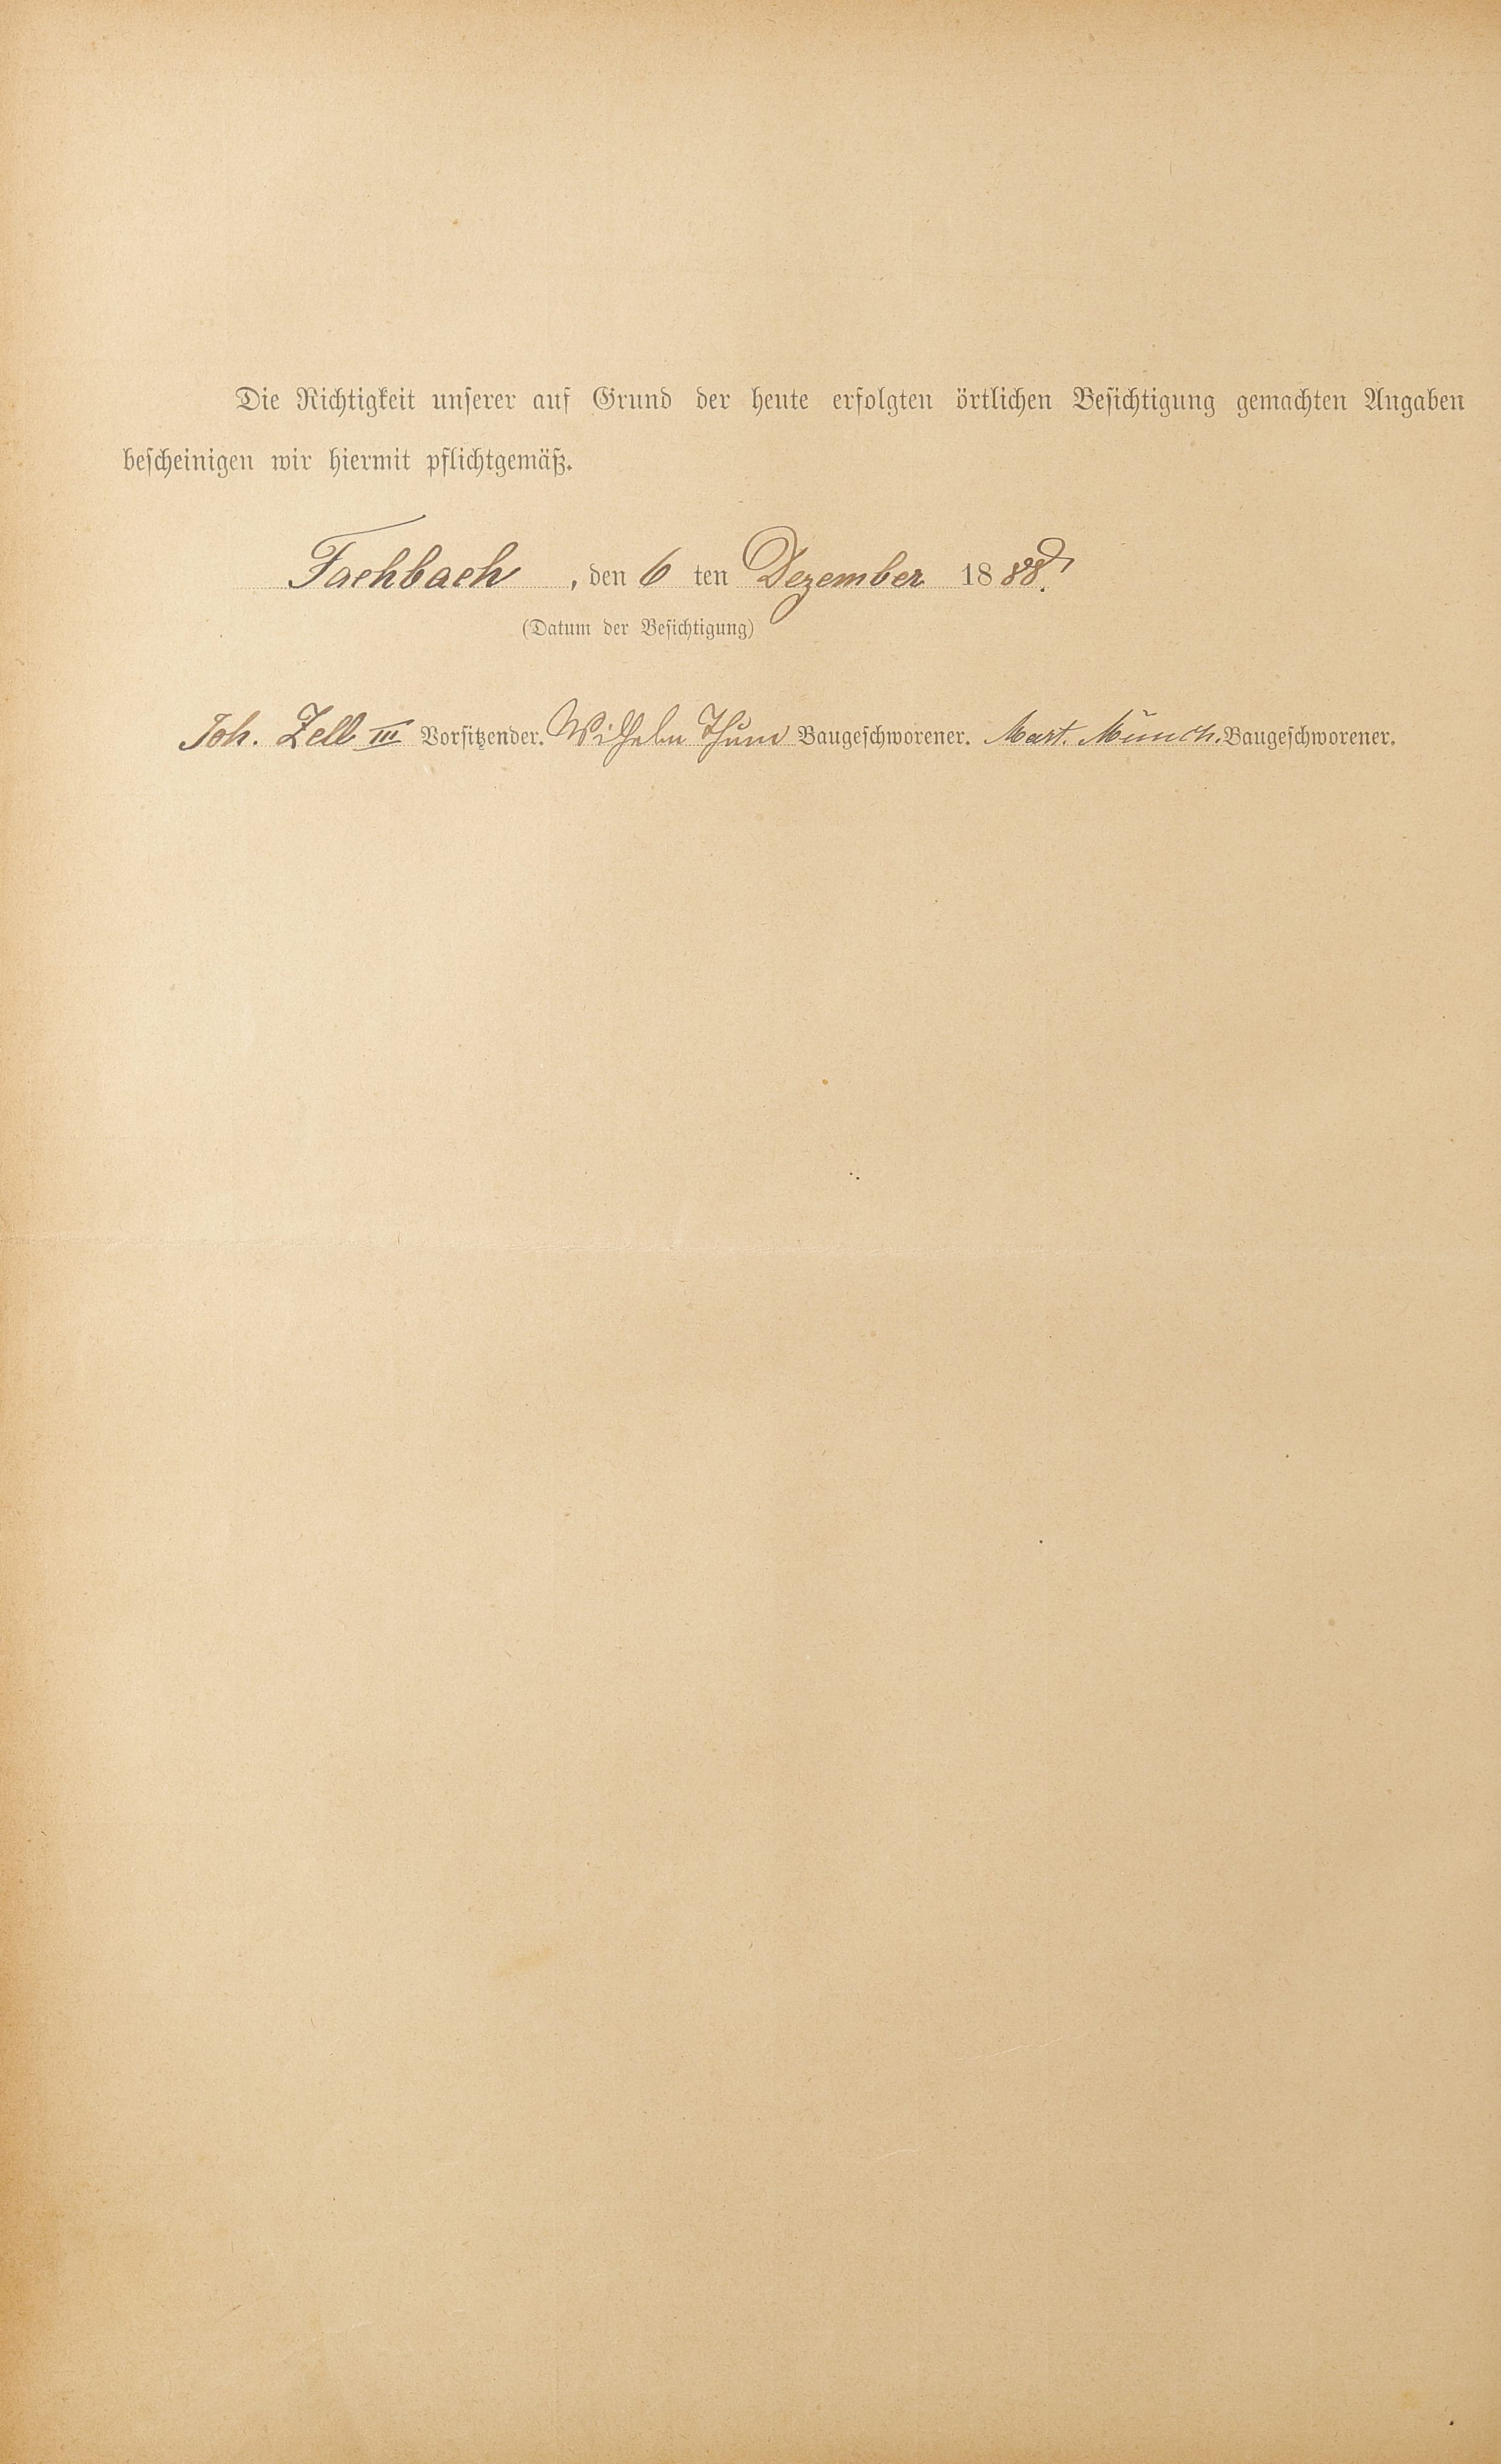 Die Richtigkeit unserer auf Grund der heute erfolgten örtlichen Besichtigung gemachten Angaben
bescheinigen wir hiermit pflichtgemäß.
Fachbach, den 6 ten Dezember 1888.
(Datum der Besichtigung)
Joh. Zell III Vorsitzender. Wilhelm Thum Baugeschworener. Mart. Münch. Baugeschworener.